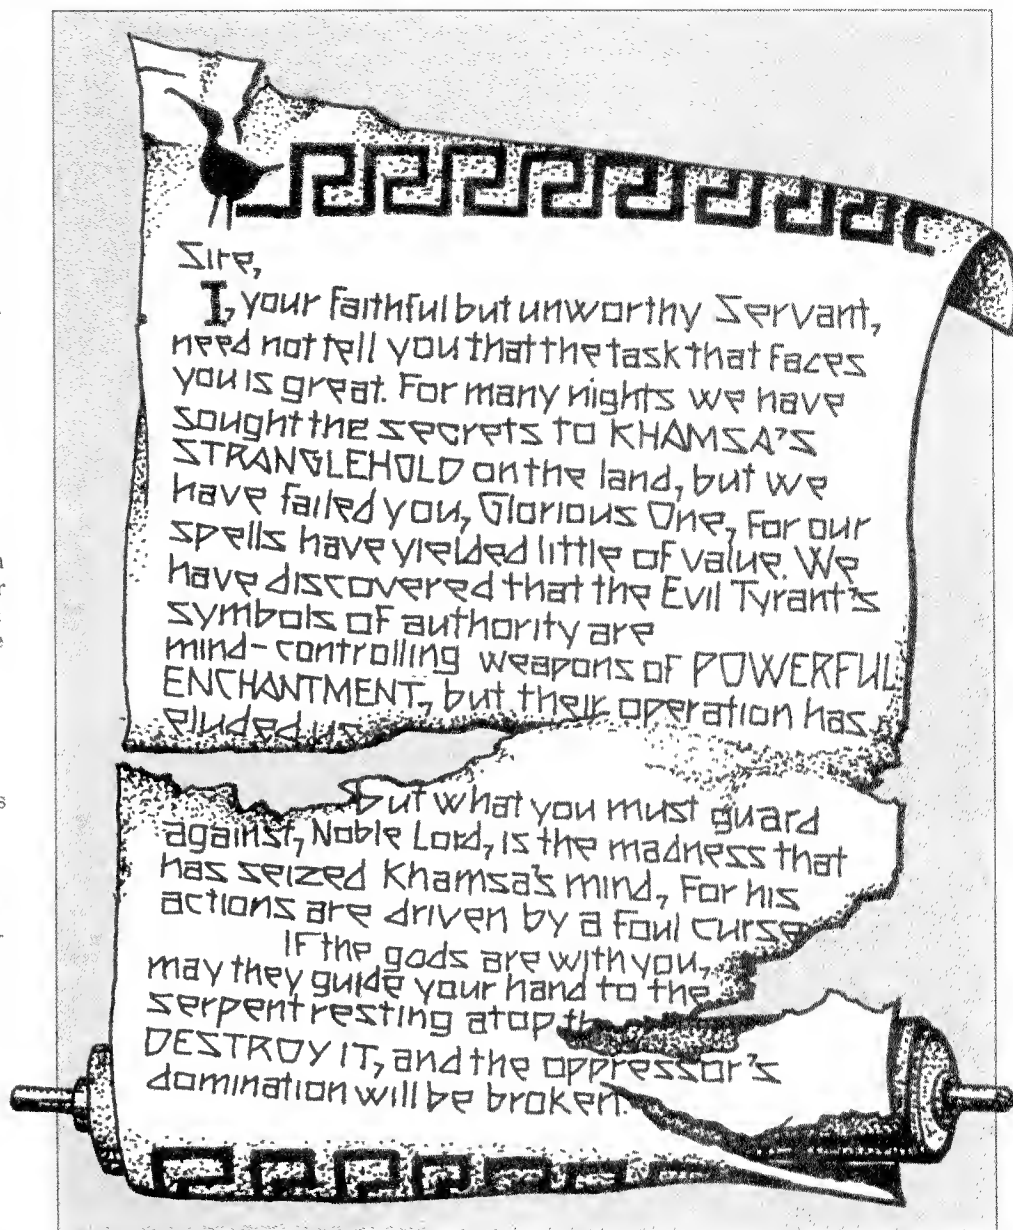 Sire,
I, your faithful but unworthy Servant,
need not tell you that the task that faces
you is great. For many nights we have
sought the secrets to KHAMSA'S
STRANGLEHOLD on the land, but we
have failed you, Glorious One, for our
spells have yielded little of value. We
have discovered that the Evil Tyrant's
symbols of authority are
mind-controlling weapons of POWERFUL
ENCHANTMENT, but their operation has
eluded us
But what you must guard
against, Noble Lord, is the madness that
has seized Khamsa's mind, for his
actions are driven by a foul curse
If the gods are with you,
may they guide your hand to the
serpent resting atop
DESTROY IT, and the oppressor's
domination will be broken.